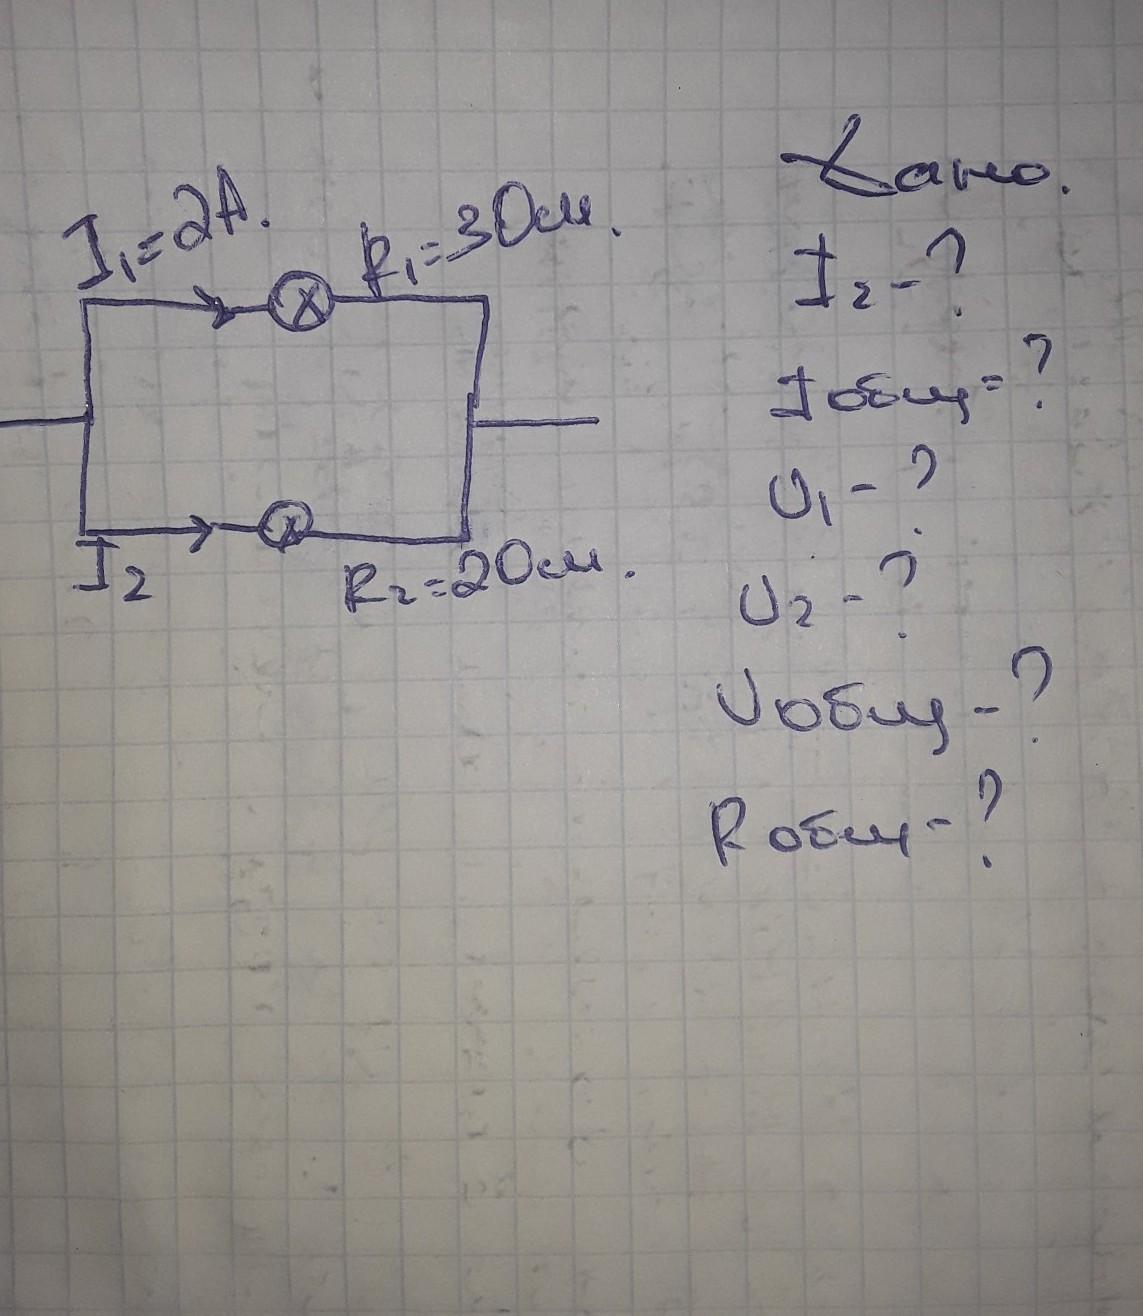 I₁=2А.
R₁=3Ом.
I₂
R₂=2Ом.
Дано.
I₂-?
Iобщ=?
U₁-?
U₂-?
Uобщ-?
Rобщ-?